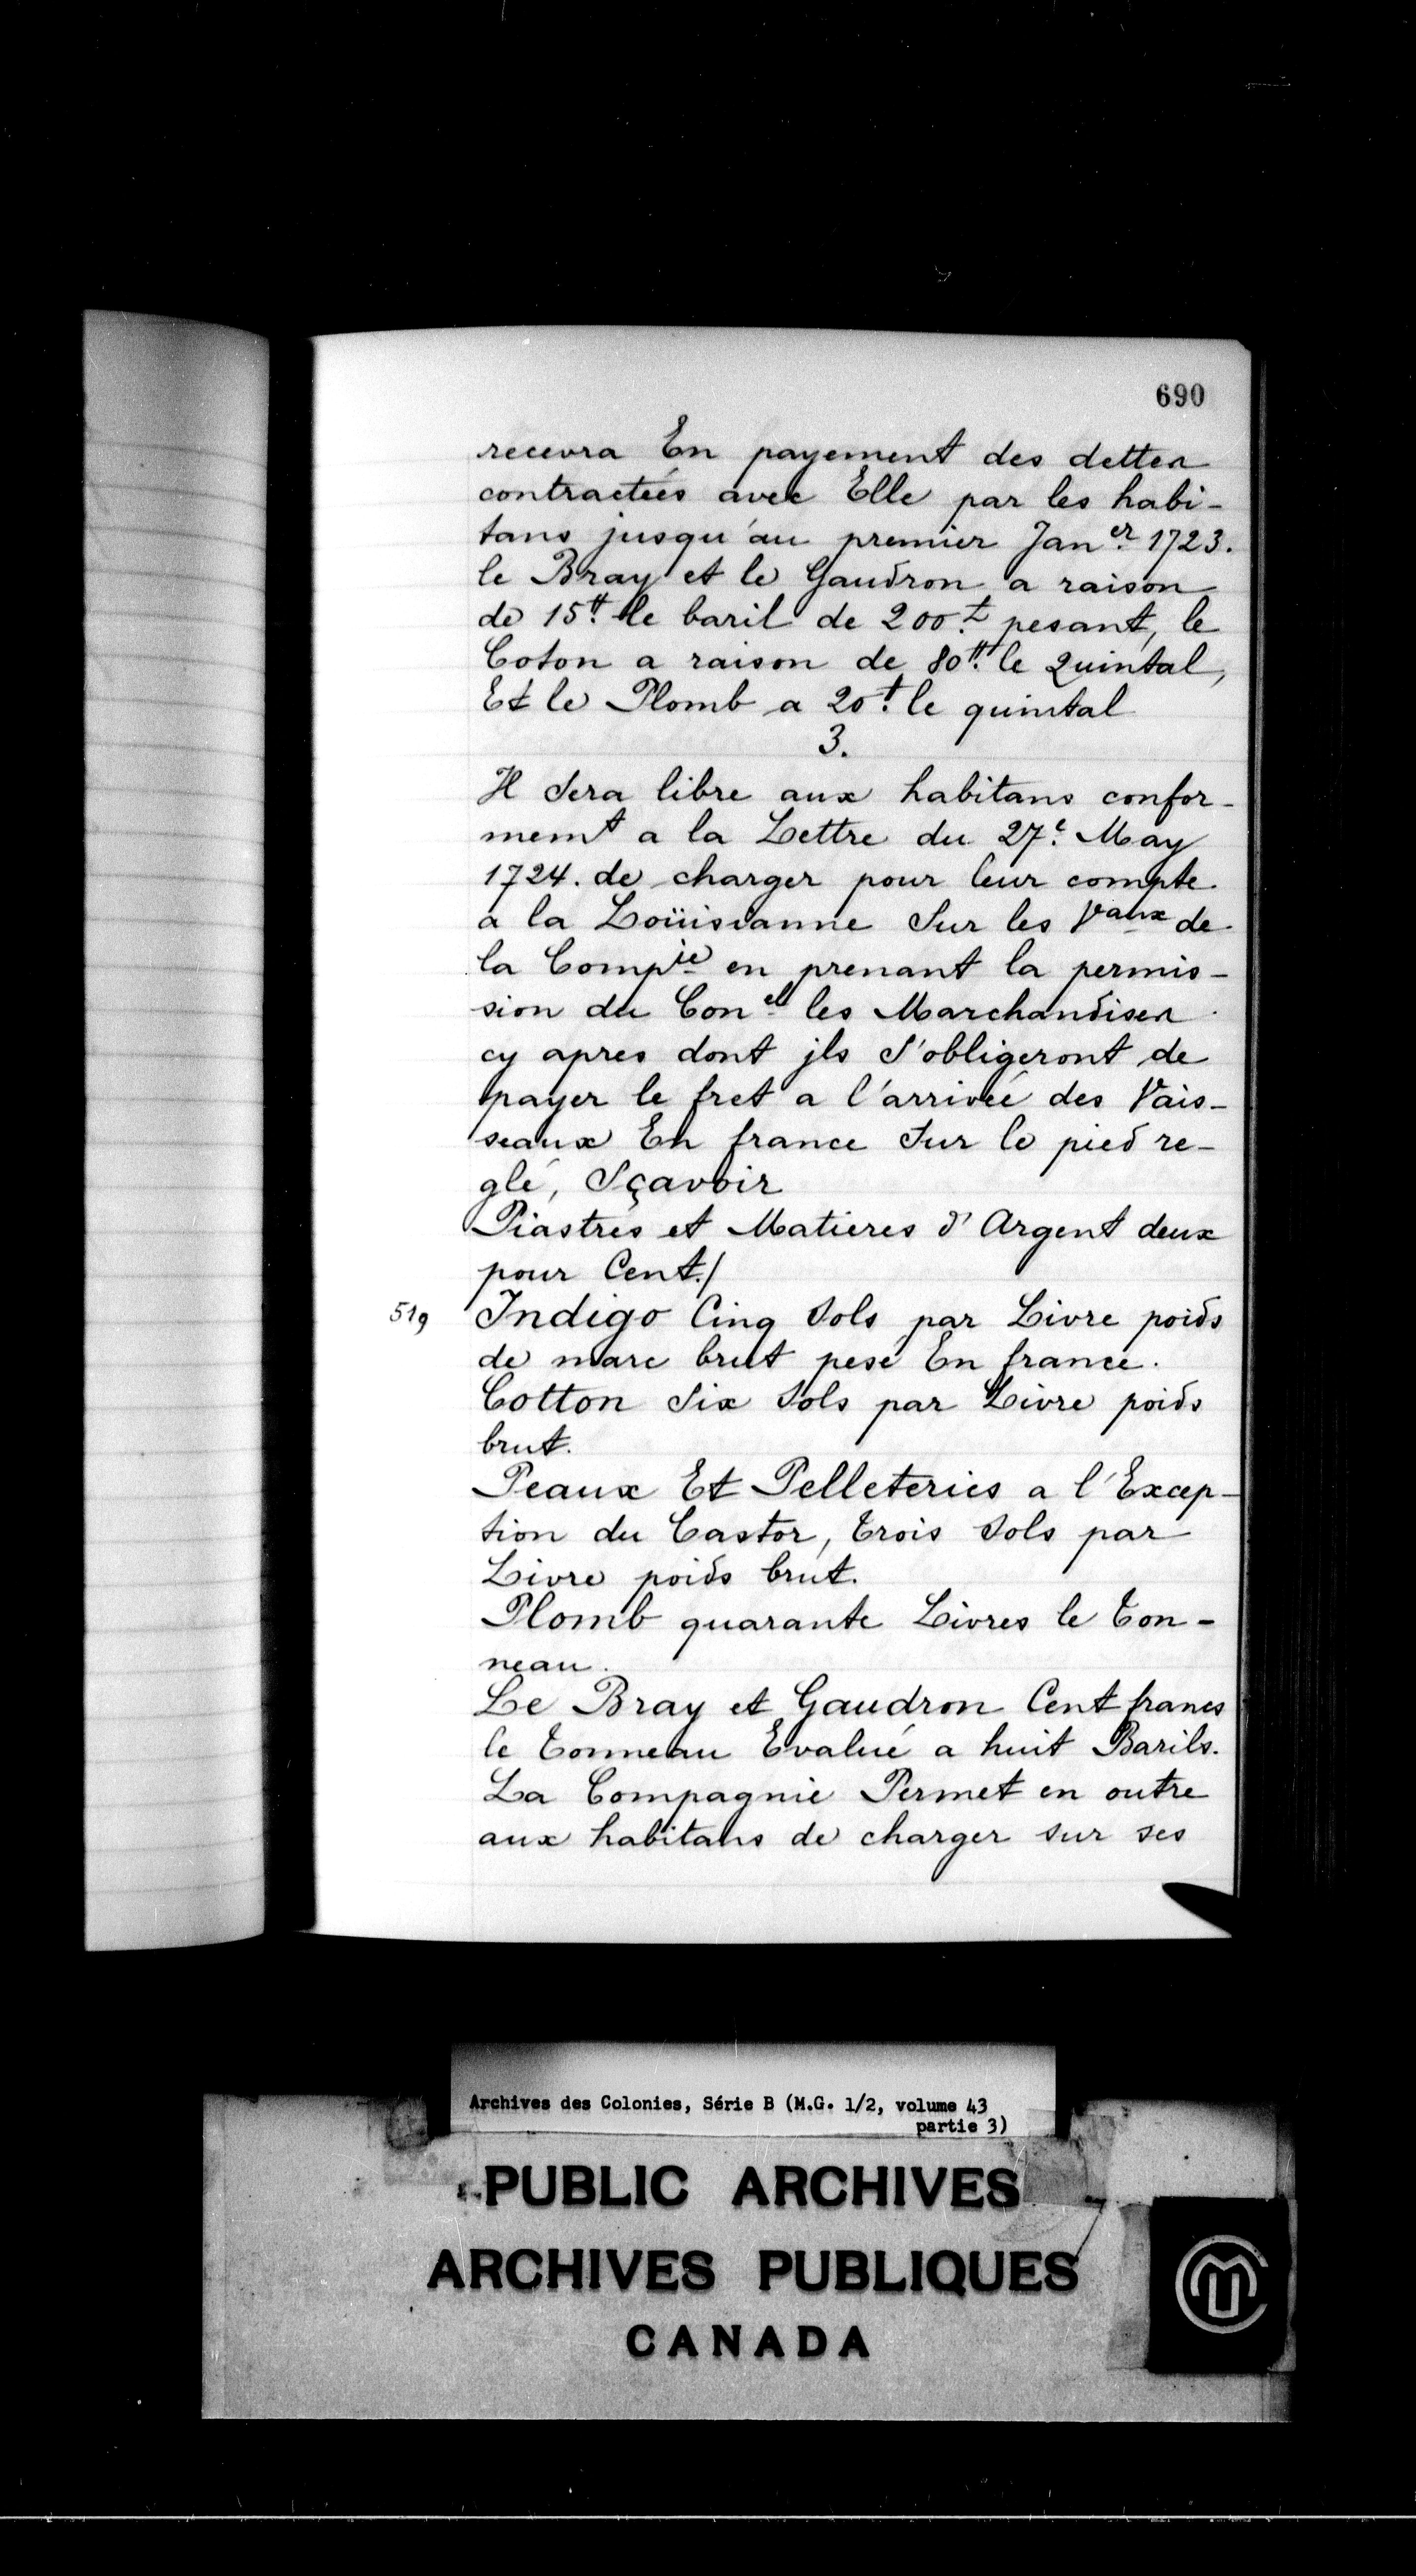 690
recevra En payement des dettes
contracteés avec Elle par les habi-
tans jusqu'au premier Jan.er 1723.
le Bray et le Gaudron a raison
de 15.tt le baril de 200.t pesant, le
Coton a raison de 80.tt le Quintal,
Et le Plomb a 20.t le quintal
3.
Il Sera libre aux habitans confor-
memt a la Lettre du 27.e May
1724. de charger pour leur compte
a la Loüisianne Sur les Vaux de
la Compie en prenant la permis-
sion du Con.el les Marchandises
cy apres dont jls S'obligeront de
payer le fret a l'arriveé des Vais-
seaux En france Sur le pied re-
glé, Sçavoir
Piastres et Matieres d'Argent deux
pour Cent./
519 Indigo Cinq Sols par Livre poids
de marc brut pesé En france.
Cotton Six Sols par Livre poids
brut.
Peaux Et Pelleteries a l'Excep-
tion du Castor, trois Sols par
Livre poids brut.
Plomb quarante Livres le ton-
neau.
Le Bray et Gaudron Cent francs
le tonneau Evalué a huit Barils.
La Compagnie Permet en outre
aux habitans de charger sur ses
Archives des Colonies, Série B (M.G. 1/2, volume 43
partie 3)
PUBLIC ARCHIVES
ARCHIVES PUBLIQUES
CANADA